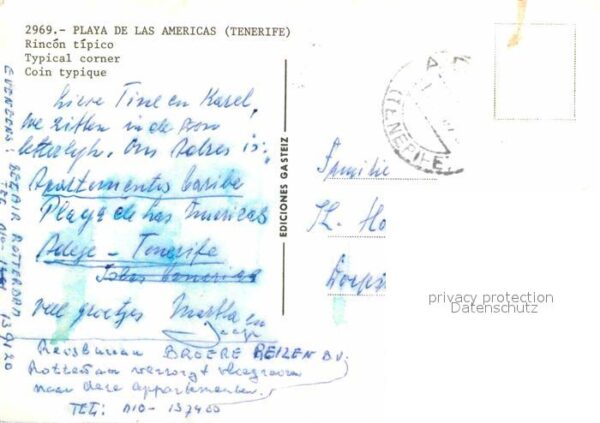 2969.- PLAYA DE LAS AMERICAS (TENERIFE)
Rincón típico
Typical corner
Coin typique
Lieve Tine en Karel,
We zitten in de zon
letterlijk. Ons Adres is:
Apartementos Caribe
Playa de las Americas
Adeje - Tenerife
Islas Canarias
veel groetjes Martha en
Jaap
Reisbureau BROERE REIZEN B.V.
Rotterdam verzorgt vliegreizen
naar deze appartementen.
TEL: 010-
EVENEENS: BELAIR ROTTERDAM
TEL 010-
EDICIONES GASTEIZ
(TENERIFE)
Familie
Th. Ho
Dorps
privacy protection
Datenschutz